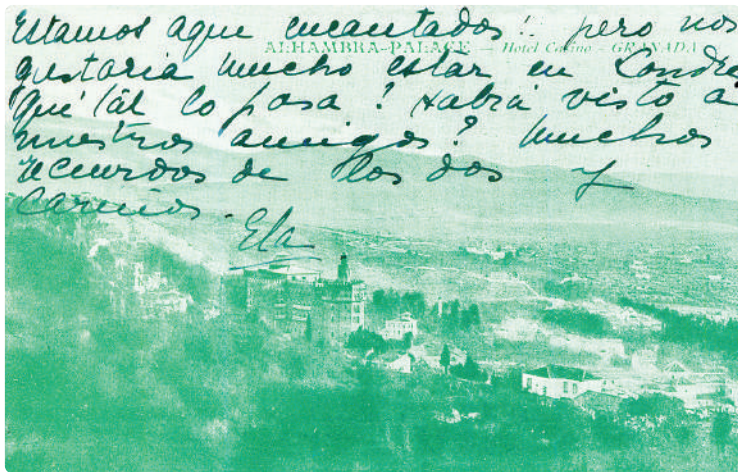 Estamos aqui encantados!! pero nos
ALHAMBRA-PALACE — Hotel Casino - GRANADA
gustaria mucho estar en Londre
qué tal lo pasa? Habrá visto a
nuestros amigos? Muchos
recuerdos de los dos y
cariños.
Ela